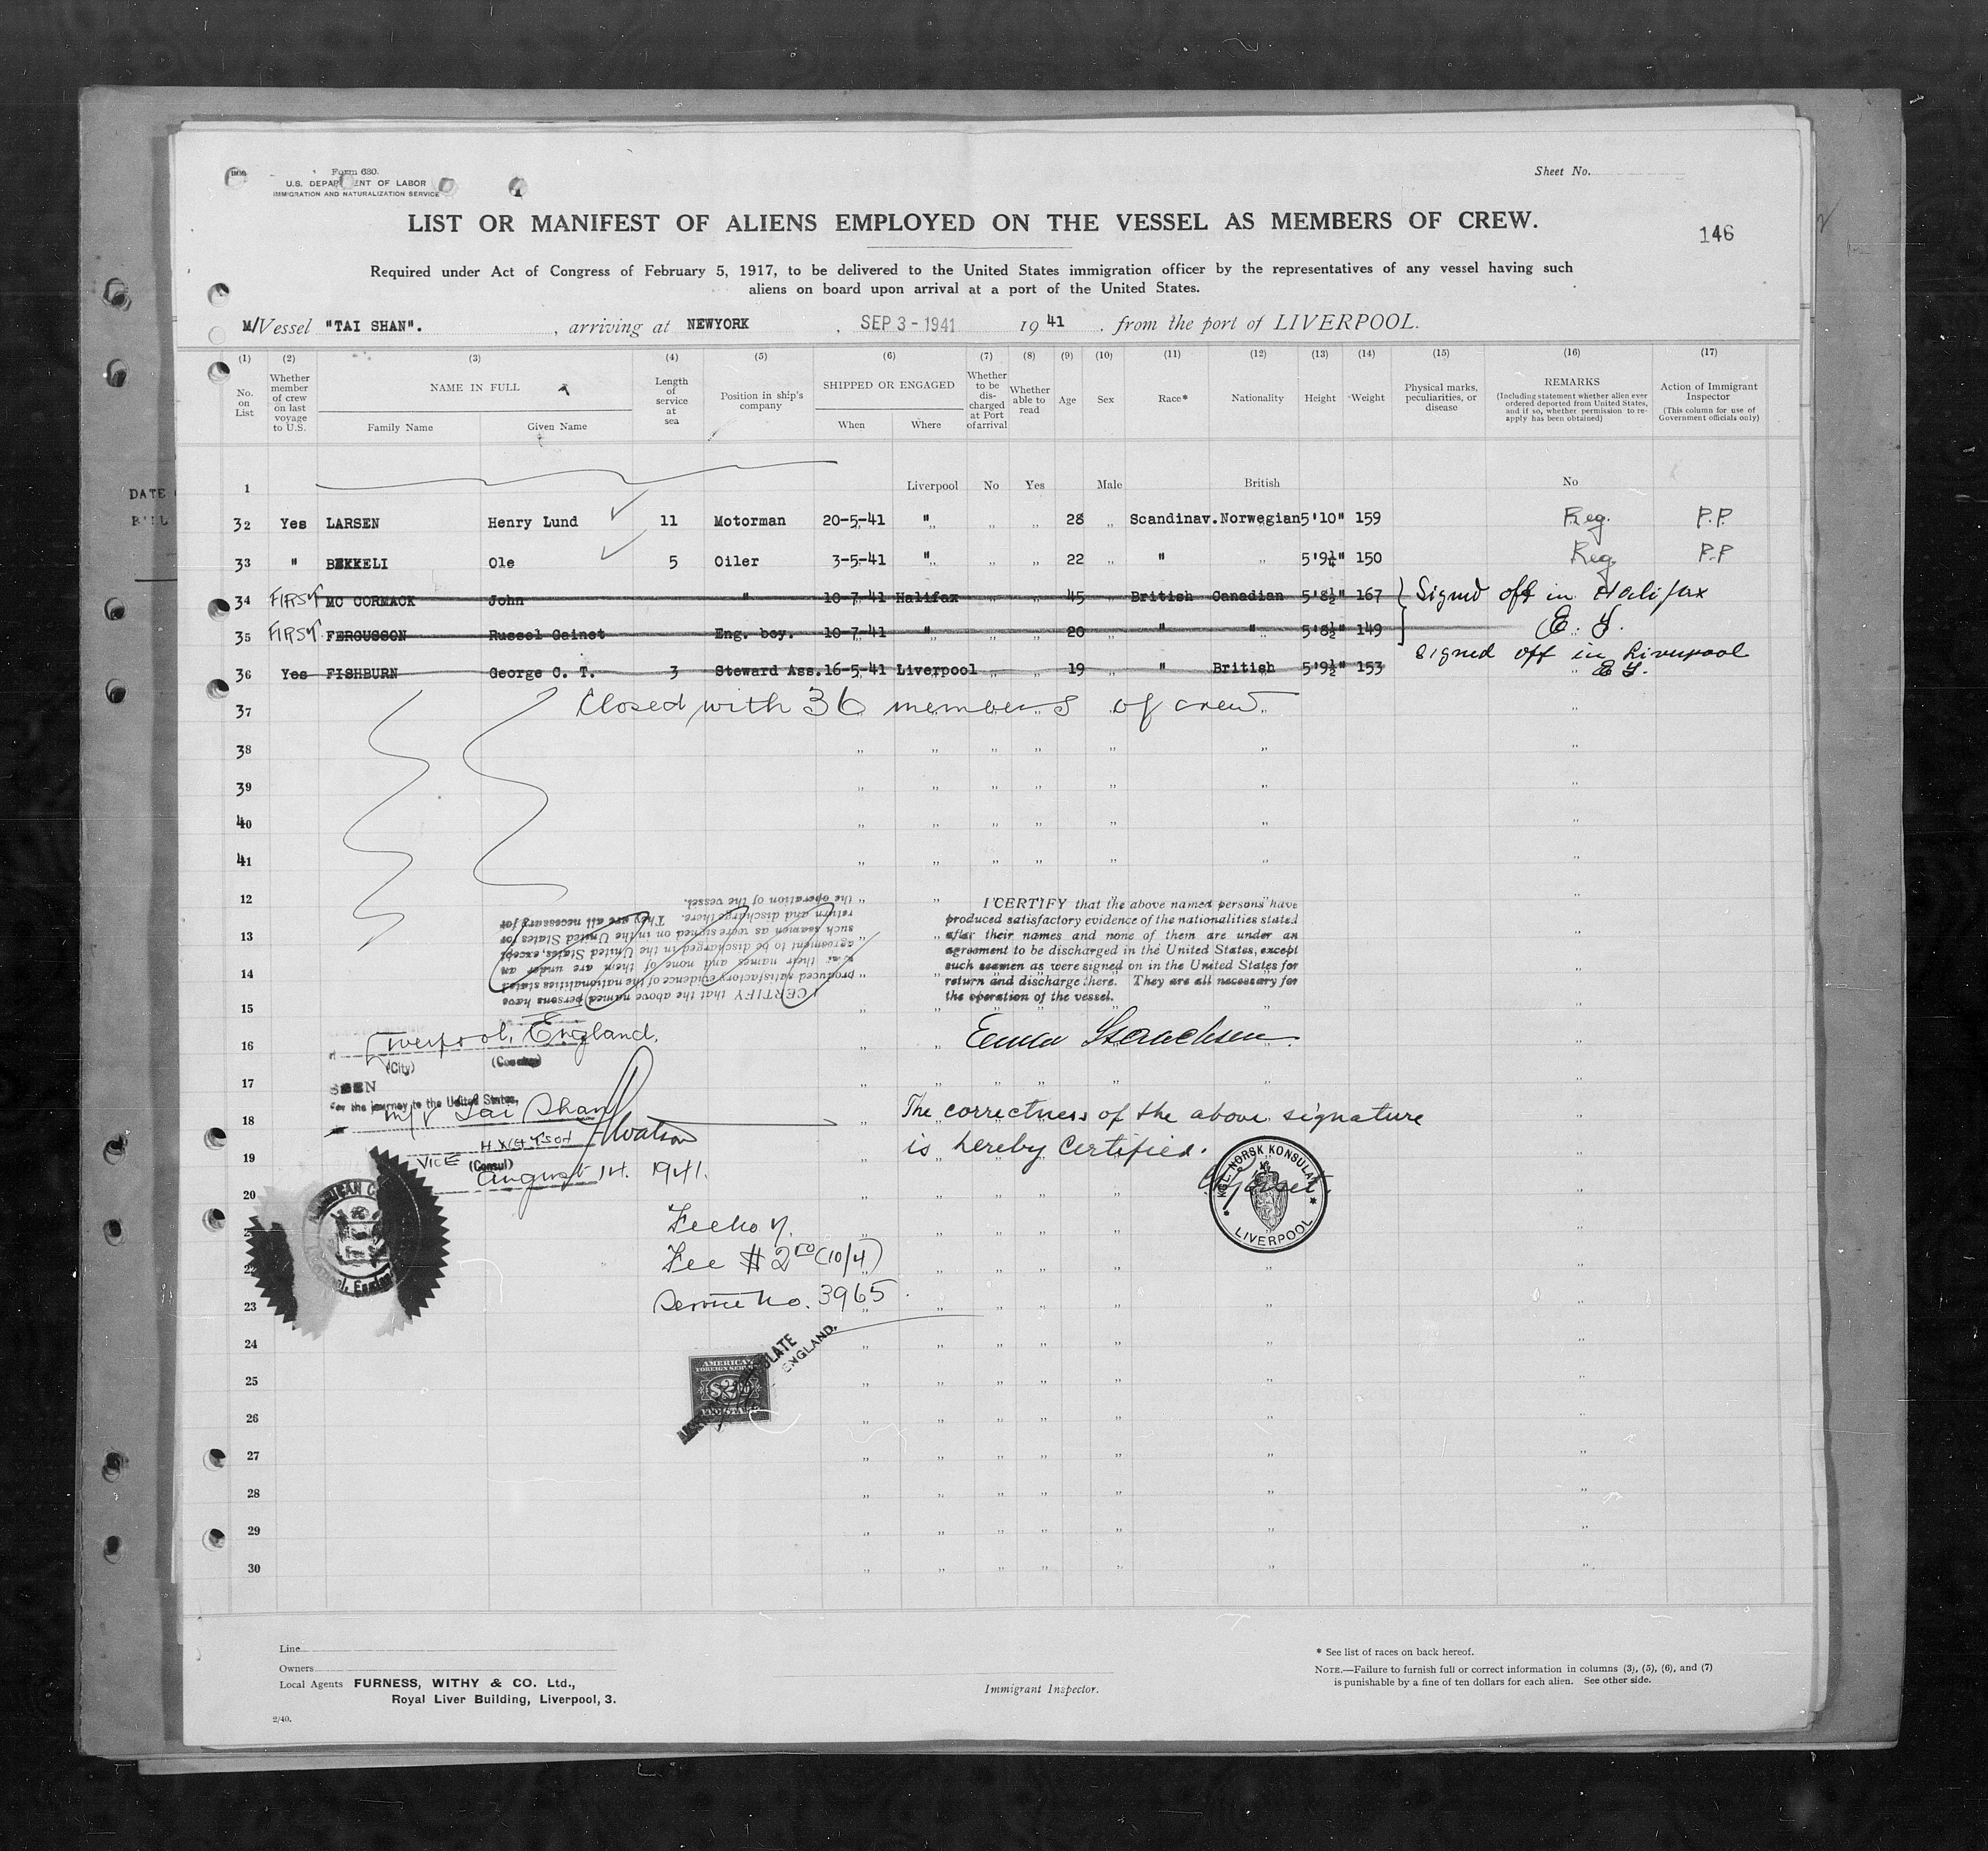 Form 680.
U.S. DEPARTMENT OF LABOR
IMMIGRATION AND NATURALIZATION SERVICE
Sheet No.
LIST OR MANIFEST OF ALIENS EMPLOYED ON THE VESSEL AS MEMBERS OF CREW.
146
Required under Act of Congress of February 5, 1917, to be delivered to the United States immigration officer by the representatives of any vessel having such
aliens on board upon arrival at a port of the United States.
M/Vessel "TAI SHAN". , arriving at NEWYORK , SEP 3 - 1941 19 41 , from the port of LIVERPOOL.
(1) (2) (3) (4) (5) (6) (7) (8) (9) (10) (11) (12) (13) (14) (15) (16) (17)
No. on List
Whether member of crew on last voyage to U.S.
NAME IN FULL
Family Name Given Name
Length of service at sea
Position in ship's company
SHIPPED OR ENGAGED
When Where
Whether to be discharged at Port of arrival
Whether able to read
Age
Sex
Race*
Nationality
Height
Weight
Physical marks, peculiarities, or disease
REMARKS
(Including statement whether alien ever ordered deported from United States, and if so, whether permission to re-apply has been obtained)
Action of Immigrant Inspector
(This column for use of Government officials only)
1 Liverpool No Yes Male British No
32 Yes LARSEN Henry Lund 11 Motorman 20-5-41 " " " 28 " Scandinav. Norwegian 5'10" 159 Reg. P.P.
33 " BEKKELI Ole 5 Oiler 3-5-41 " " " 22 " " " 5'9¼" 150 Reg P.P
34 FIRST MC CORMACK John " 10-7-41 Halifax " " 45 " British Canadian 5'8½" 167 Signed off in Halifax
35 FIRST FERGUSSON Russel Gainet Eng. boy. 10-7-41 " " " 20 " " " 5'8½" 149
36 Yes FISHBURN George C. T. 3 Steward Ass. 16-5-41 Liverpool " " 19 " " British 5'9½" 153 Signed off in Liverpool
37 Closed with 36 members of crew
38
39
40
41
12
13
14
15
16
17
18
19
20
22
23
24
25
26
27
28
29
30
I CERTIFY that the above named persons have
produced satisfactory evidence of the nationalities stated
after their names and none of them are under an
agreement to be discharged in the United States, except
such seamen as were signed on in the United States for
return and discharge there. They are all necessary for
the operation of the vessel.
I CERTIFY that the above named persons have
produced satisfactory evidence of the nationalities stated
after their names and none of them are under an
agreement to be discharged in the United States, except
such seamen as were signed on in the United States for
return and discharge there. They are all necessary for
the operation of the vessel.
Liverpool, England.
(City) (Country)
SEEN
For the journey to the United States,
m/v Tai Shan
H. Watson
VICE (Consul)
August 14. 1941.
The correctness of the above signature
is hereby certified.
KGL. NORSK KONSULAT
LIVERPOOL
Fee $2.00 (10/4)
Service No. 3965
AMERICAN
FOREIGN SERVICE
$2.00
FEE STAMP
ENGLAND.
Line
Owners
Local Agents FURNESS, WITHY & CO. Ltd.,
Royal Liver Building, Liverpool, 3.
2/40.
Immigrant Inspector.
* See list of races on back hereof.
NOTE.—Failure to furnish full or correct information in columns (3), (5), (6), and (7)
is punishable by a fine of ten dollars for each alien. See other side.